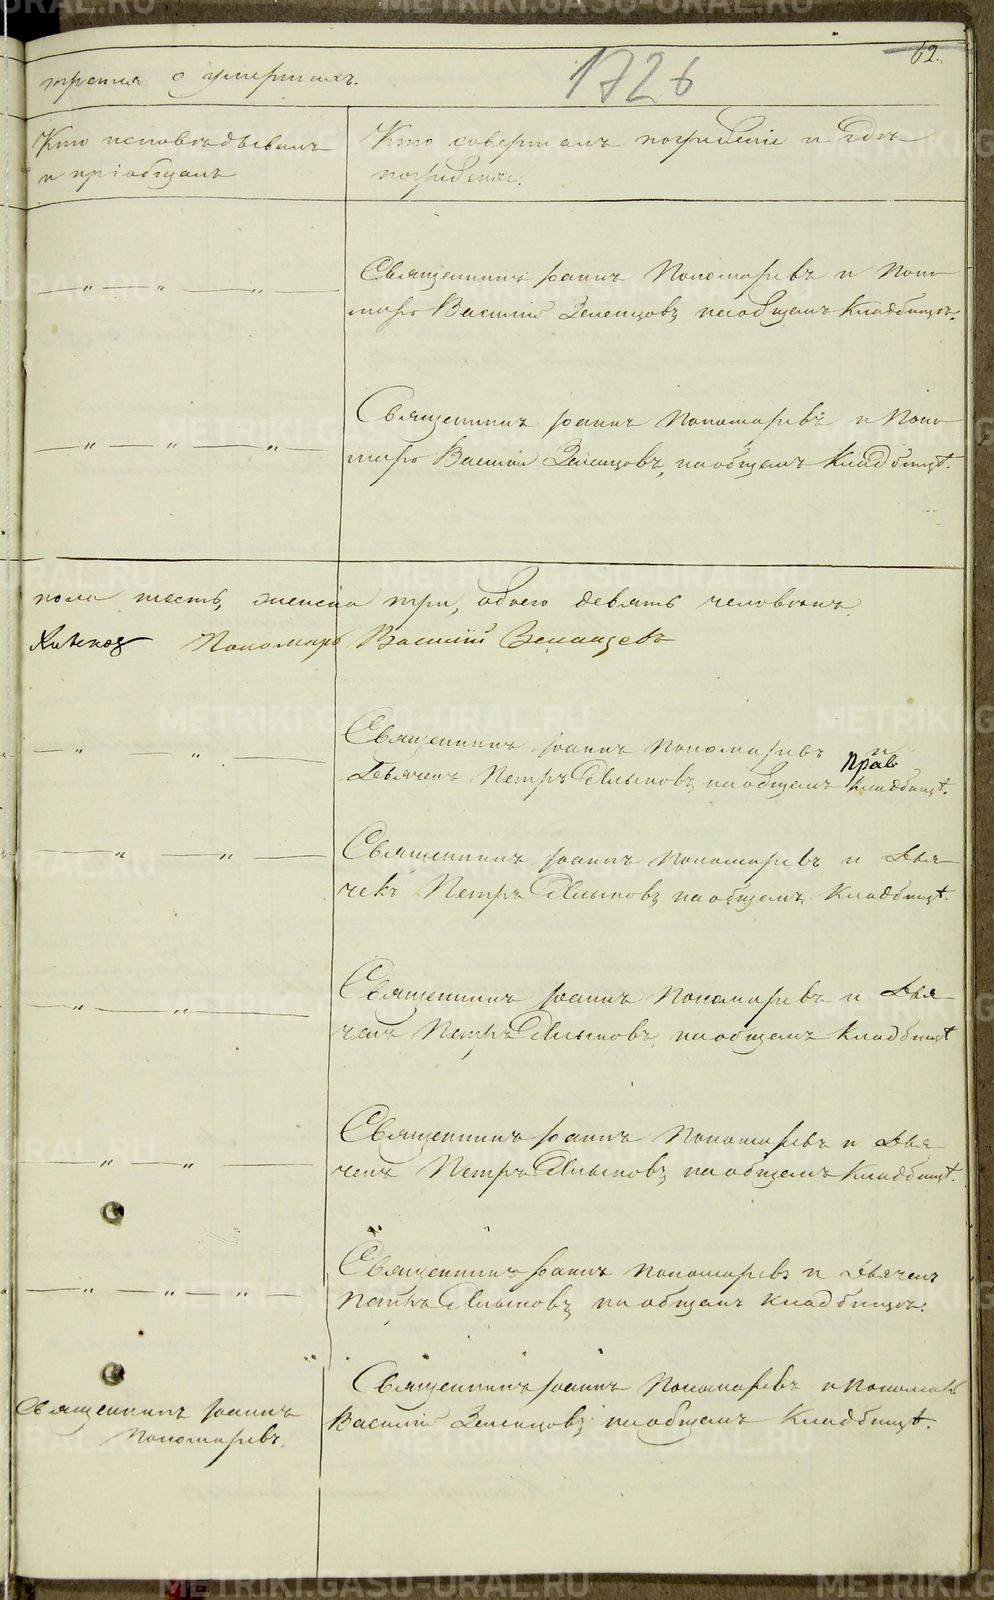 62.
1726
третия о умершихъ.
Кто исповѣдывалъ
и пріобщалъ
Кто совершалъ погребеніе и гдѣ
погребены.
Священникъ Іоаннъ Пономаревъ и Поно-
марь Василій Зеленцовъ на общемъ Кладбищѣ.
Священникъ Іоаннъ Пономаревъ и Поно-
марь Василій Зеленцовъ, на общемъ Кладбищѣ.
пола шесть, женска три, обоего девять человѣкъ.
Пономарь Василій Зеленцовъ
Священникъ Іоаннъ Пономаревъ и
Дьячекъ Петръ на общемъ Прав Кладбищѣ.
Священникъ Іоаннъ Пономаревъ и Дья-
чекъ Петръ на общемъ Кладбищѣ.
Священникъ Іоаннъ Пономаревъ и Дья-
чекъ Петръ на общемъ Кладбищѣ
Священникъ Іоаннъ Пономаревъ и Дья-
чекъ Петръ на общемъ Кладбищѣ.
Священникъ Іоаннъ Пономаревъ и Дьячекъ
Петръ на общемъ Кладбищѣ.
Священникъ Іоаннъ
Пономаревъ.
Священникъ Іоаннъ Пономаревъ и Пономарь
Василій Зеленцовъ на общемъ Кладбищѣ.
METRIKI.GASO-URAL.RU